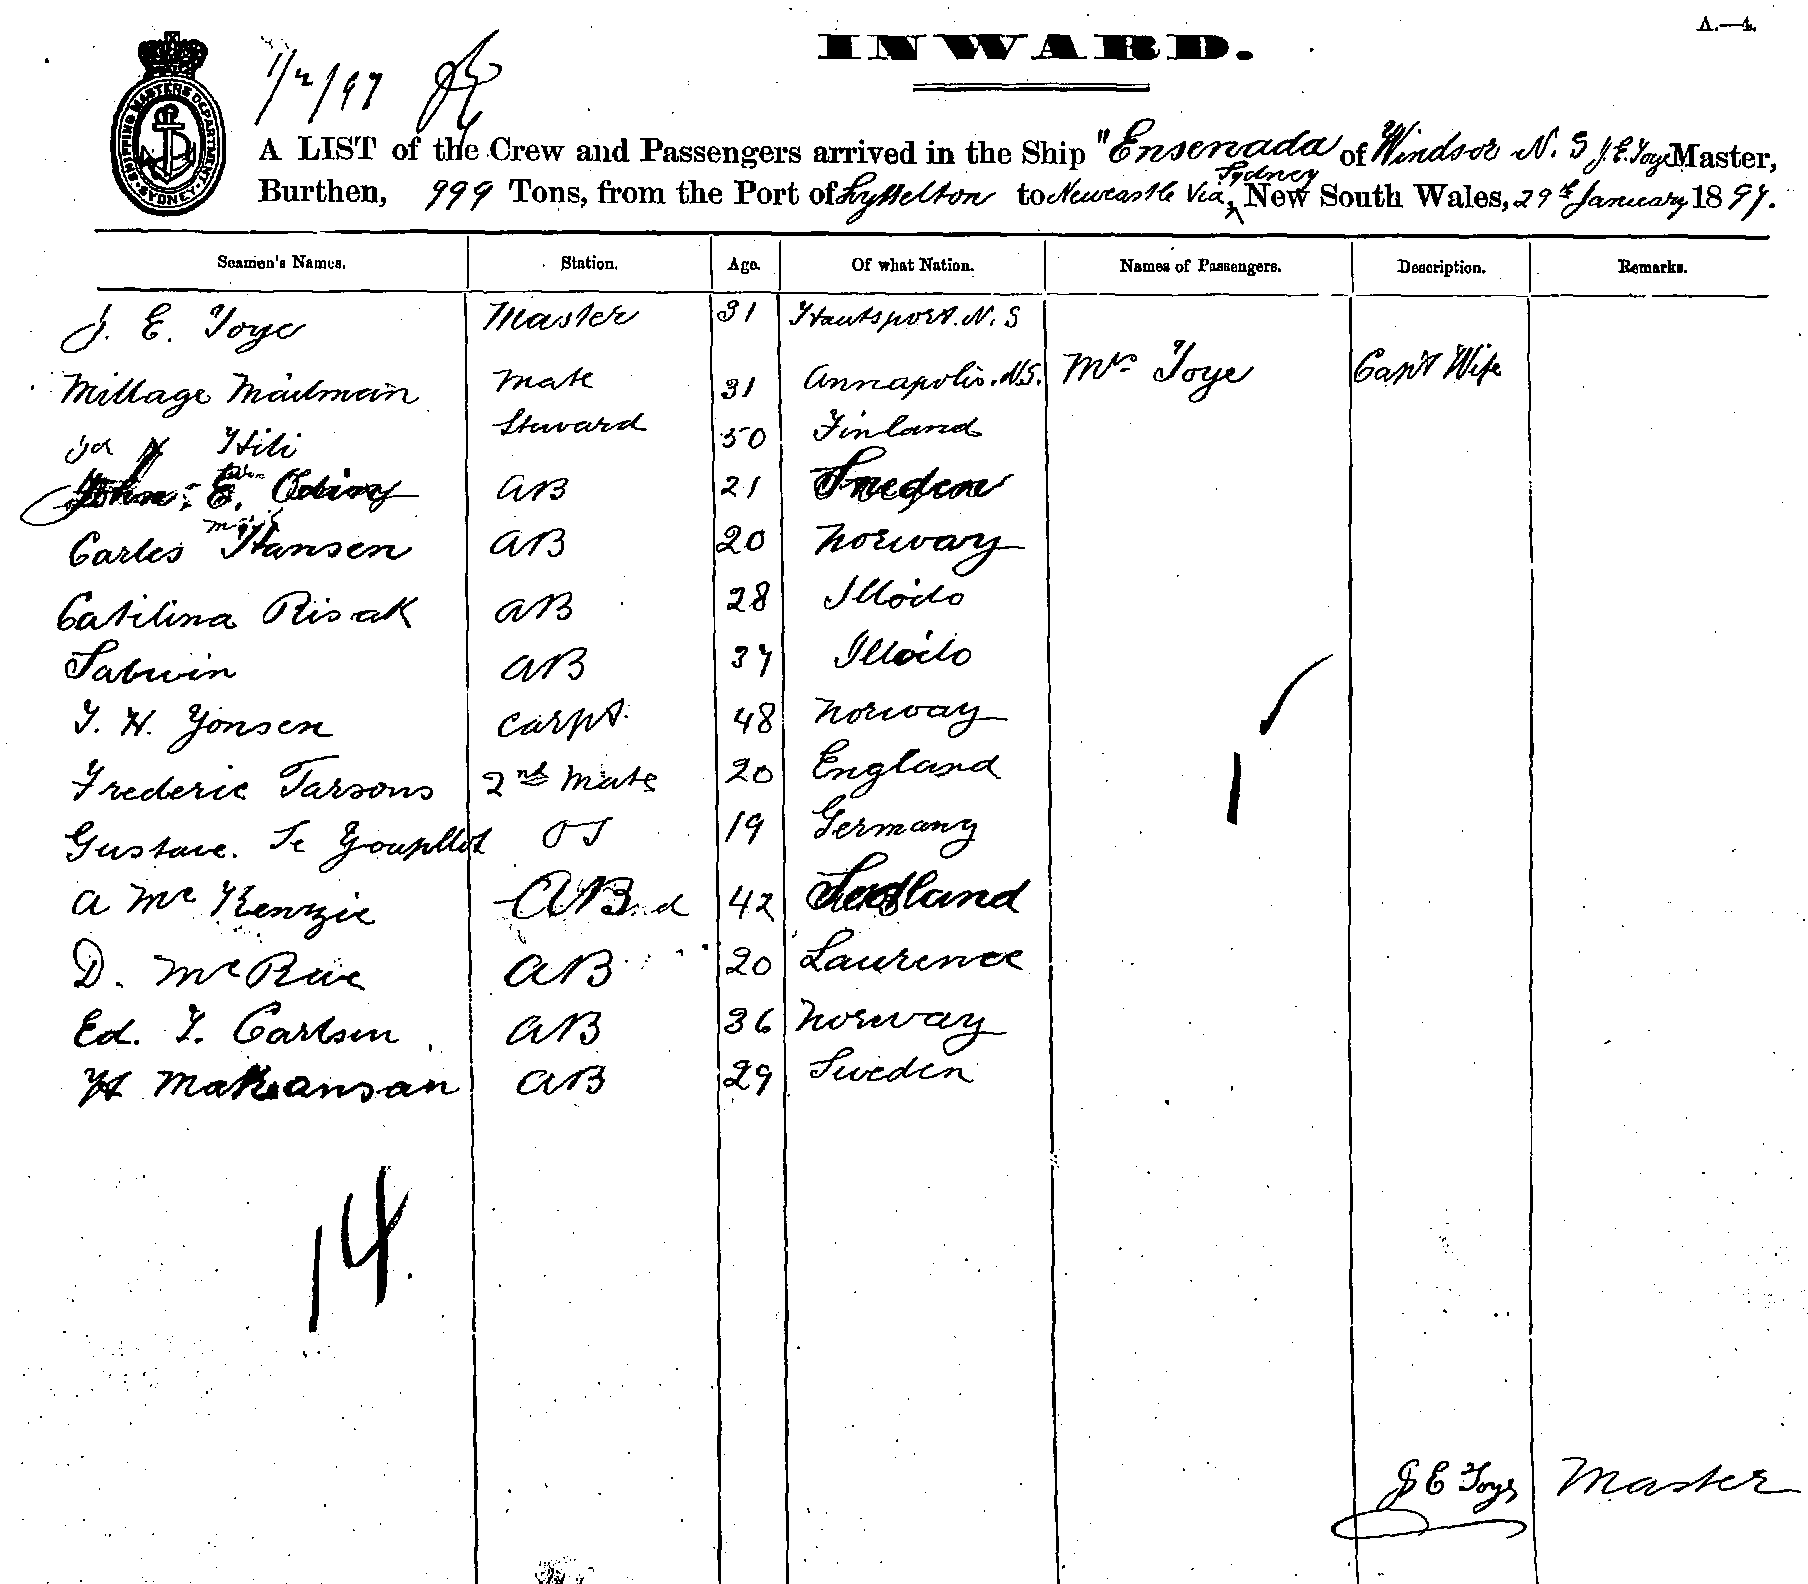 A.—4.
INWARD.
1/2/97
SHIPPING MASTERS DEPARTMENT SYDNEY
A LIST of the Crew and Passengers arrived in the Ship "Ensenada of Windsor N. S J. E. Toye Master,
Burthen, 999 Tons, from the Port of Lyttelton to Newcastle Via Sydney New South Wales, 29th January 1897.
Seamen's Names. Station. Age. Of what Nation. Names of Passengers. Description. Remarks.
J. E. Toye Master 31 Hautsport. N. S
Millage Mailman Mate 31 Annapolis. N.S. Mrs Toye Capt Wife
Hili Steward 50 Finland
John. E. AB 21 Sweden
Carles Hansen AB 20 Norway
Catilina Risak AB 28 Illoilo
Salwin AB 37 Illoilo
T. H. Yonsen Carpt. 48 Norway
Frederic Tarsons 2nd Mate 20 England
Gustave. Te OS 19 Germany
A McKenzie AB 42
D. McRae AB 20 Laurence
Ed. T. Carlsen AB 36 Norway
H AB 29 Sweden
14
1
J E Toye Master